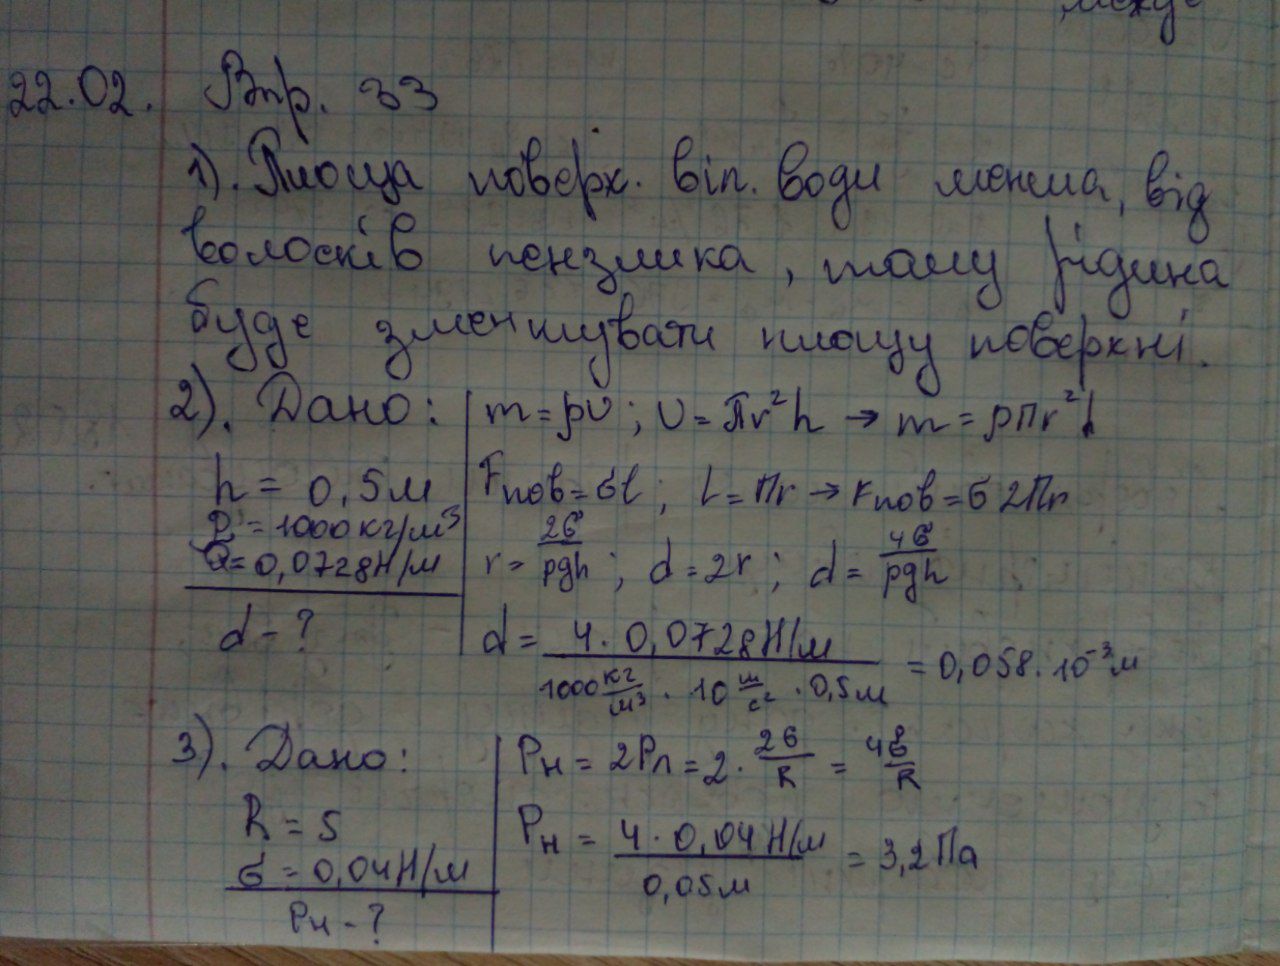 між
22.02. Впр. 33
1). Площа поверх. віл. води менша, від
волосків пензлика, тому рідина
буде зменшувати площу поверхні.
2). Дано:
h = 0,5м
ρ = 1000кг/м³
σ = 0,0728Н/м
d - ?
m = ρυ ; υ = πr²h → m = ρπr²h
Fпов = σl ; L = Πr → Fпов = σ2Πr
r = 2σ/ρgh ; d = 2r ; d = 4σ/ρgh
d = 4 · 0,0728Н/м / 1000 кг/м³ · 10 м/с² · 0,5м = 0,058 · 10⁻³м
3). Дано:
R = 5
σ = 0,04Н/м
Pн - ?
Pн = 2Pл = 2 · 2σ/R = 4σ/R
Pн = 4 · 0,04Н/м / 0,05м = 3,2Па